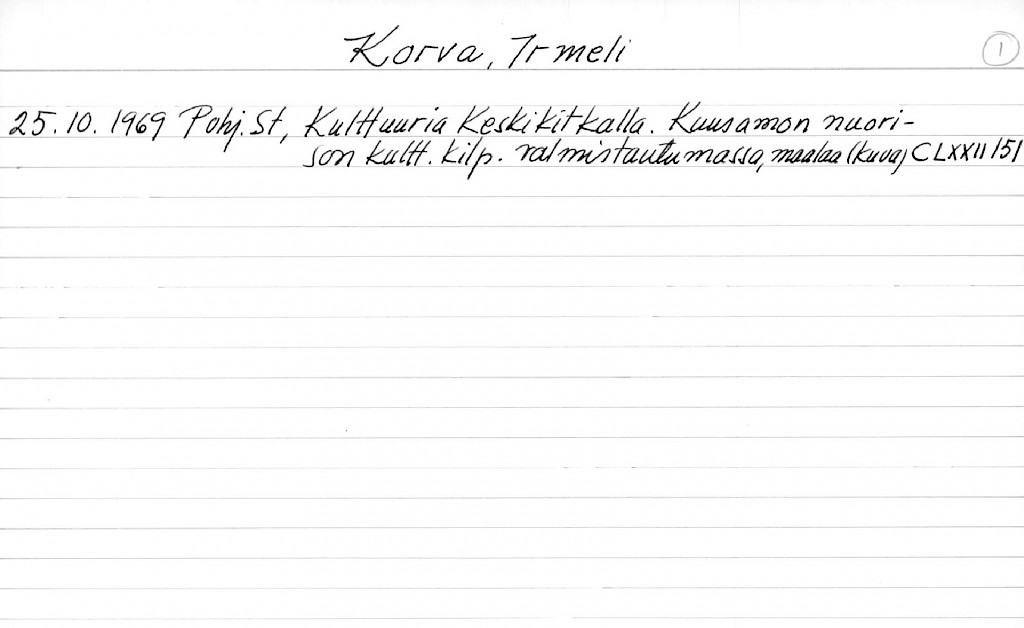 Korva, Irmeli
1
25.10.1969 Pohj. St, Kulttuuria Keskikitkalla. Kuusamon nuori-
son kultt. kilp. valmistautumassa, maalaa (kuva) CLXXII 151